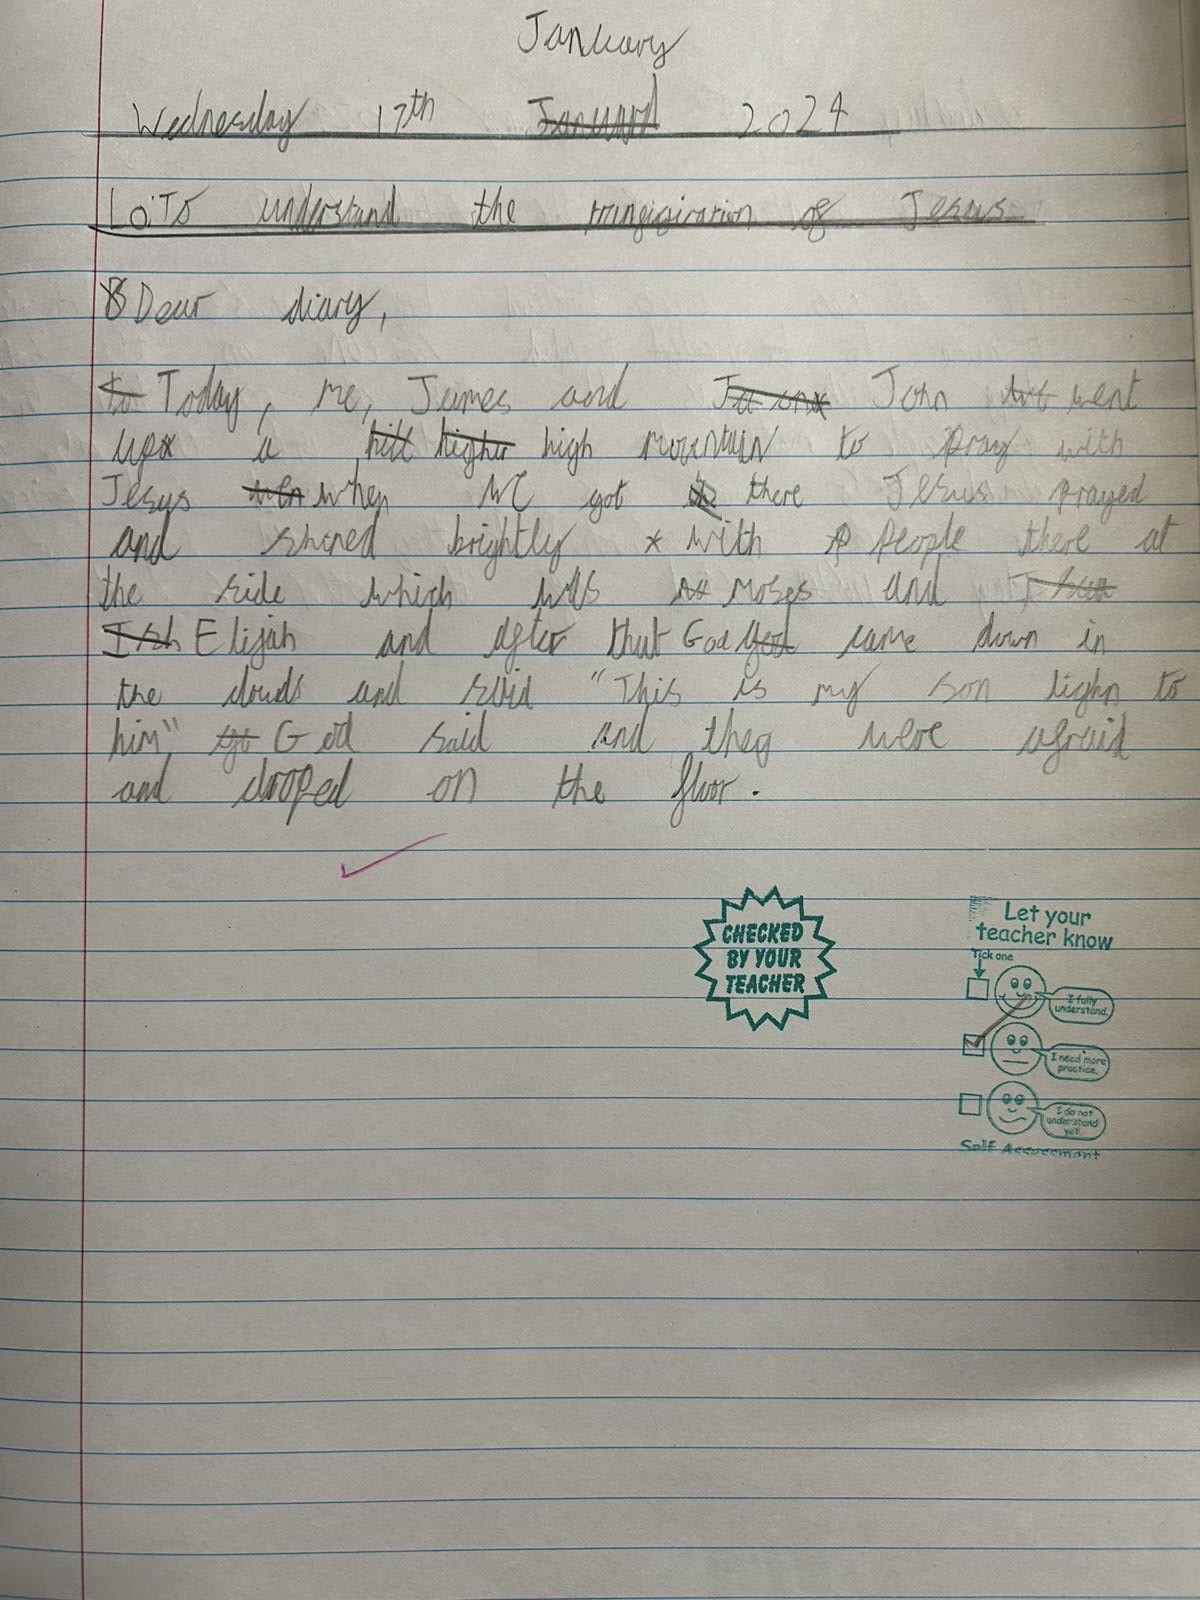 January
Wednesday 17th January 2024
LO:To understand the trangigiration of Jesus
Dear diary,
to Today, me, James and John went
up a hill higher high mountain to pray with
Jesus when we got there Jesus prayed
and shined brightly with people there at
the side which was Moses and
Elijah and after that God God came down in
the clouds and said "This is my son lighn to
him" God said and they were afraid
and droped on the floor.
CHECKED
BY YOUR
TEACHER
Let your
teacher know
Tick one
I fully
understand.
I need more
practice.
I do not
understand
yet.
Self Assessment